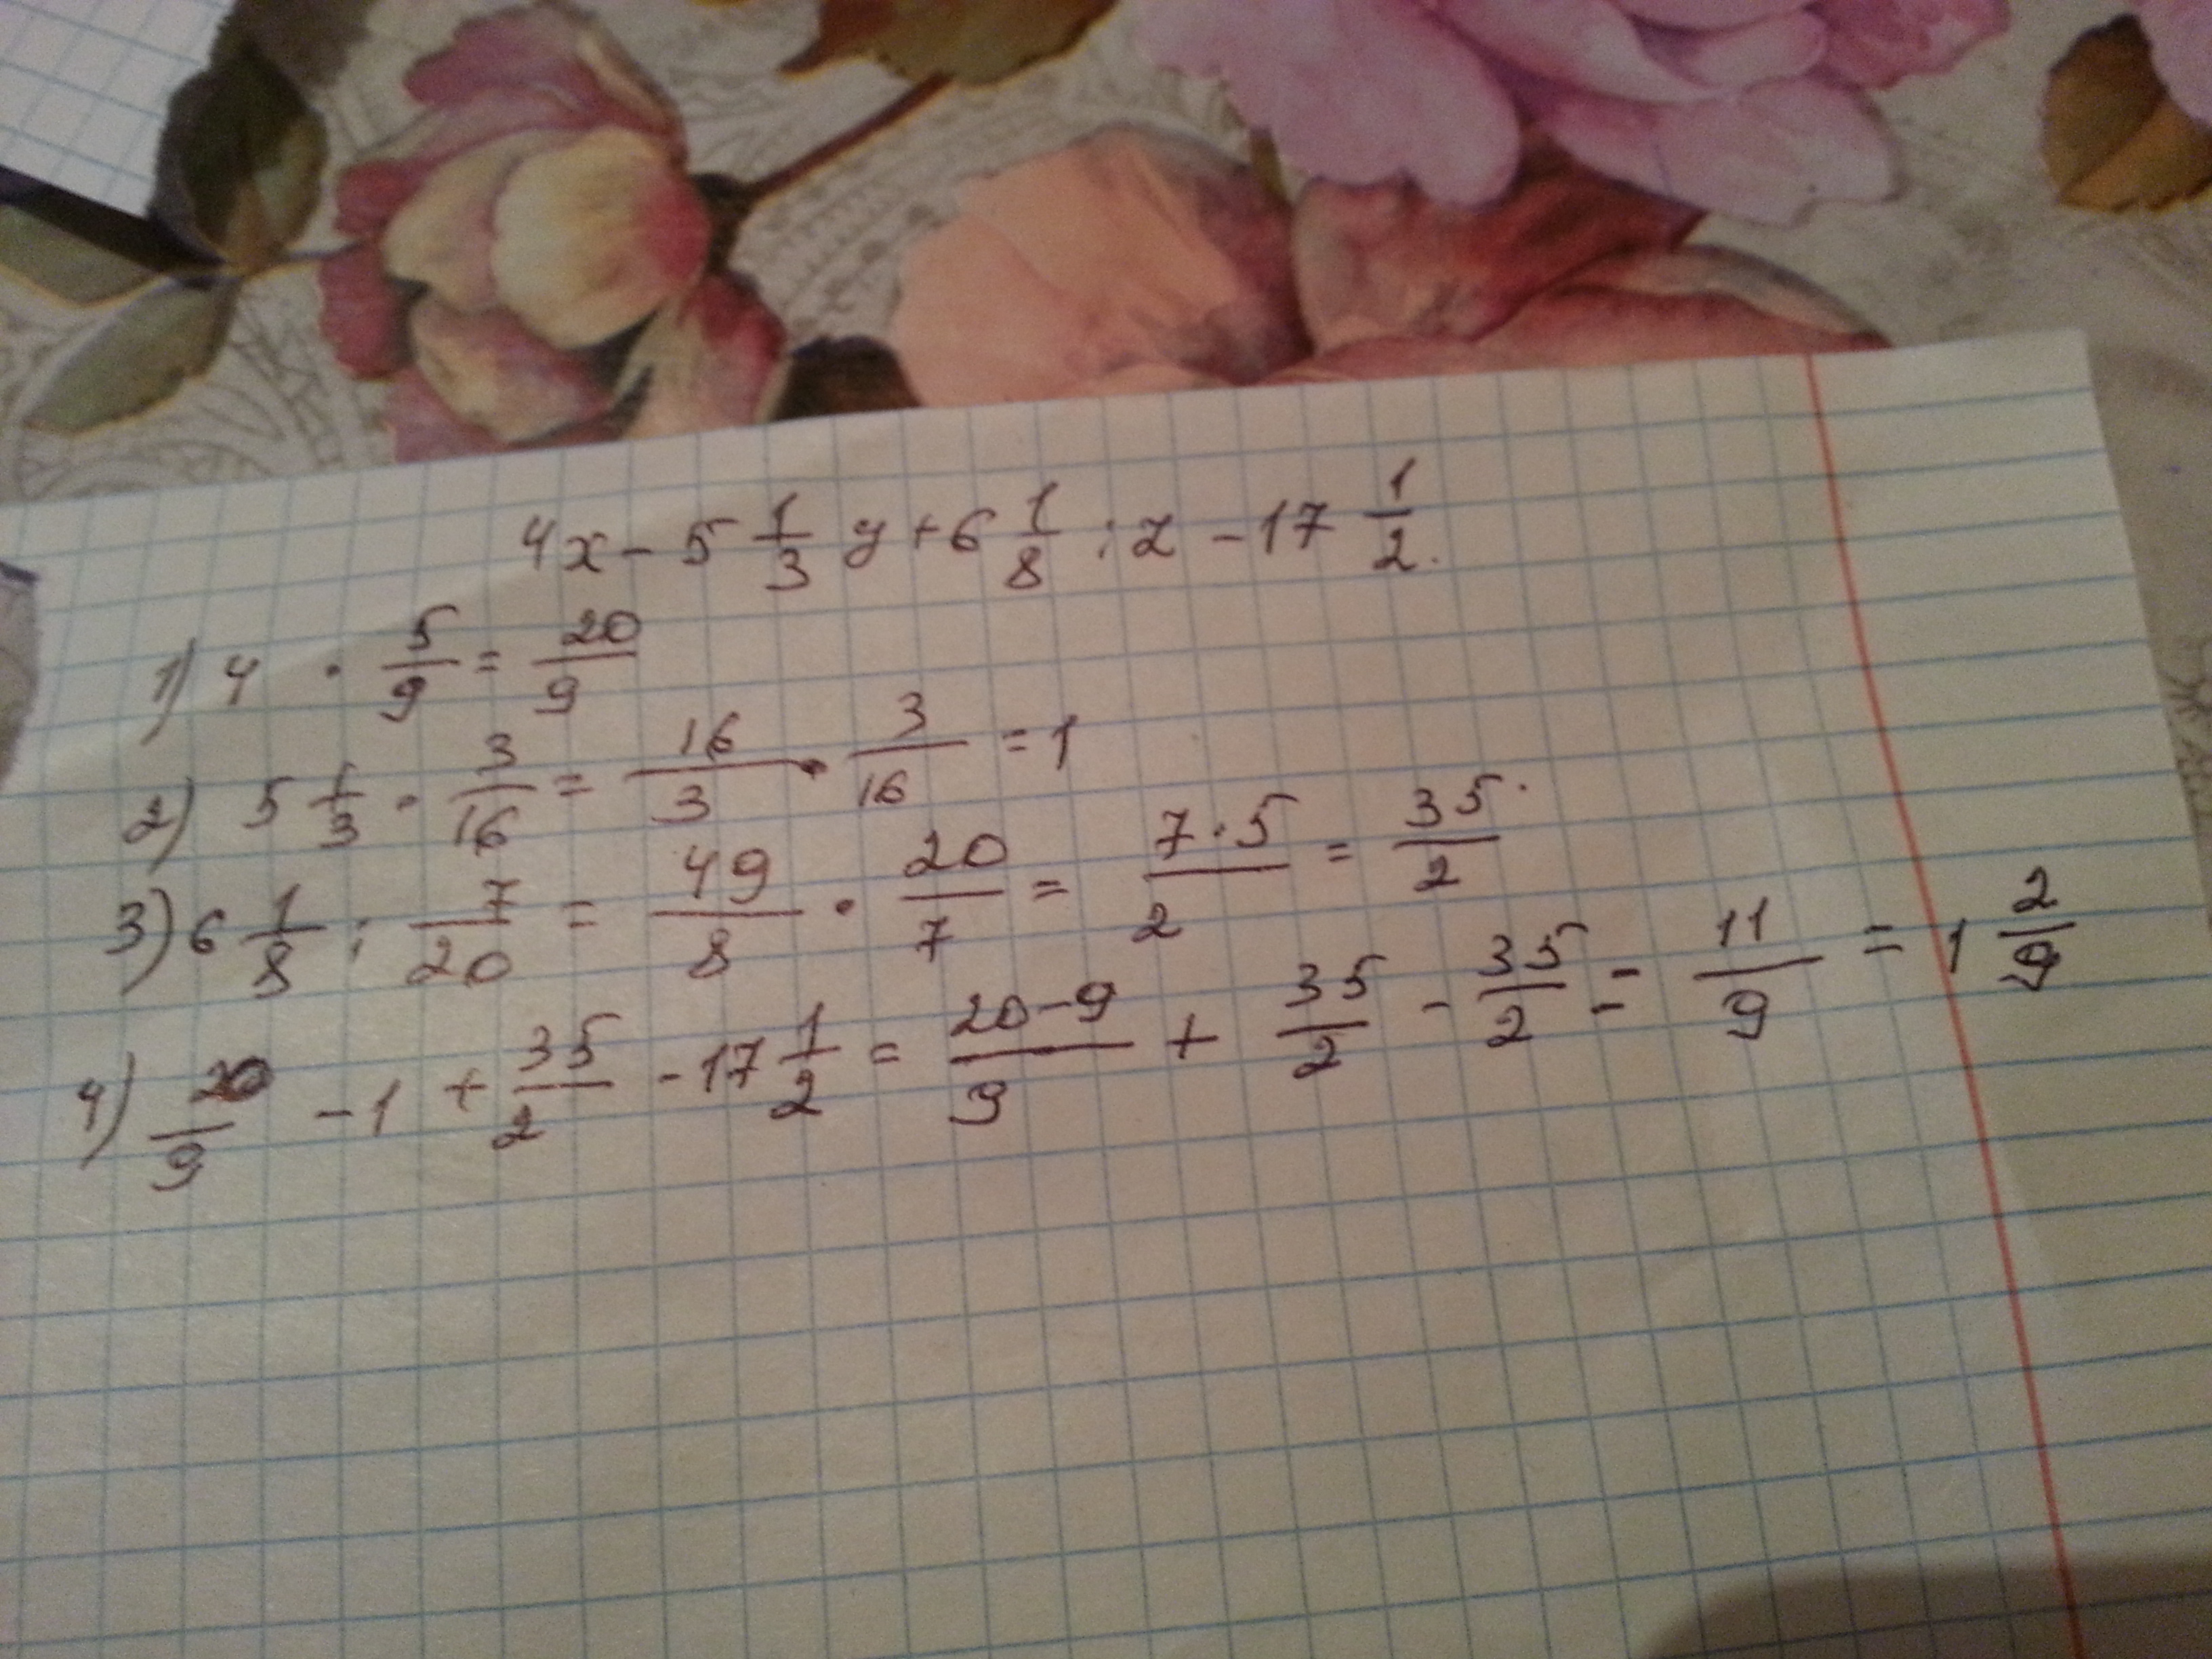 4x - 5 1/3 y + 6 1/8 : z - 17 1/2.
1) 4 · 5/9 = 20/9
2) 5 1/3 · 3/16 = 16/3 · 3/16 = 1
3) 6 1/8 : 7/20 = 49/8 · 20/7 = 7·5/2 = 35/2
4) 20/9 - 1 + 35/2 - 17 1/2 = 20-9/9 + 35/2 - 35/2 = 11/9 = 1 2/9